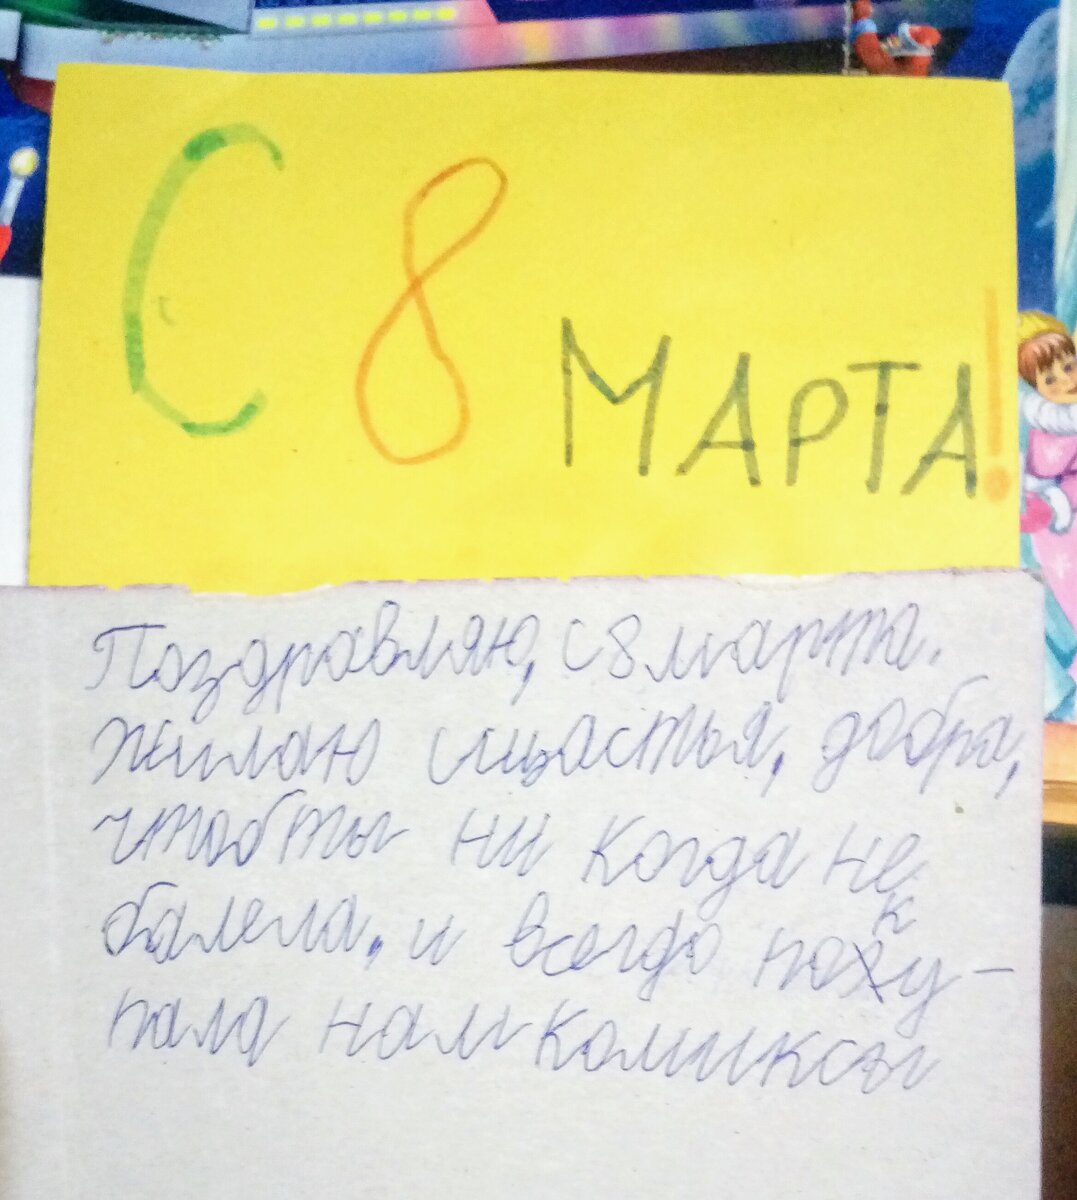 С 8 МАРТА!
Поздравляю, с 8 марта.
жилаю сщастья, добра,
чтобты ни когда не
балела, и всегда поку-
пала нам комиксы